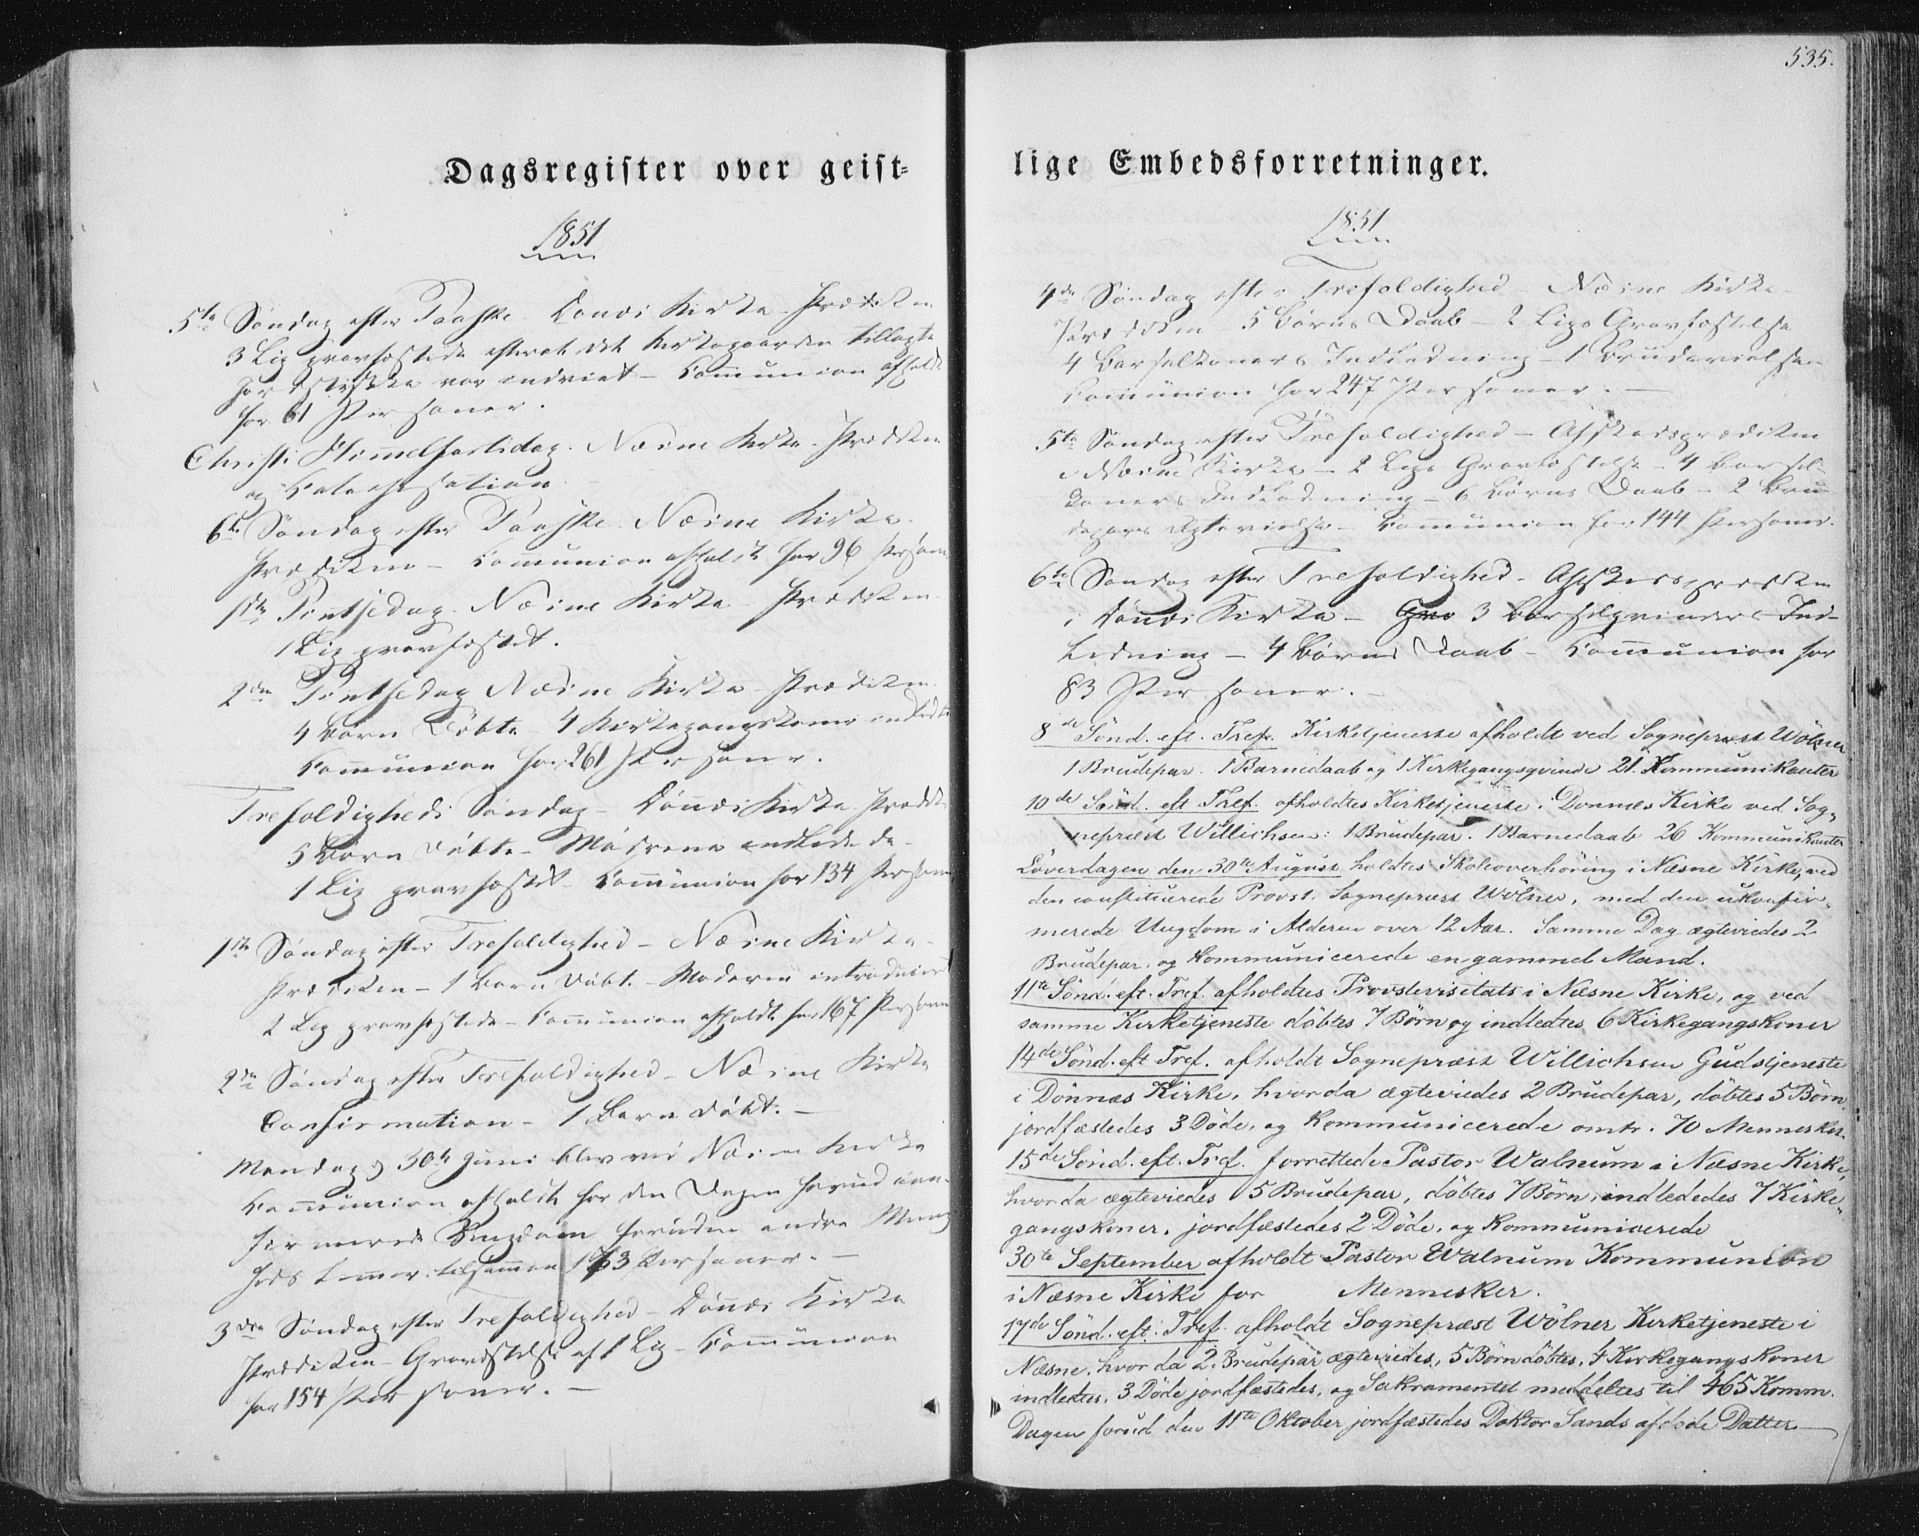 535.
Dagsregister over geist-
1851
5te Søndag efter Paaske. Dønæs Kirke. Prædiken
3 Lig gravfæstede efterat det Kirkegaarden tillagte
Jordstykke var indviet – Communion afholdt
for 61 Personer.
Christi Himmelfartsdag. Næsne Kirke. Prædiken
og Catechisation
6te Søndag efter Paaske. Næsne Kirke.
Prædiken – Communion afholdt for 96 Person
1ste Pintsedag. Næsne Kirke. Prædiken.
1 Lig gravfæstet.
2den Pintsedag Næsne Kirke. Prædiken.
4 Børn døbte 4 Kirkegangskoner indledte
Communion for 261 Personer.
Trefoldigheds Søndag – Dønnæs Kirke. Prædik
5 Børn døbte – Mødrene indledede –
1 Lig gravfæstet – Communion for 134 Person
1ste Søndag efter Trefoldighed – Næsne Kirke –
Prædiken – 1 Barn døbt. – Moderen introducer
2 Lig gravfæstede – Communion afholdt for 167 Person
2den Søndag efter Trefoldighed – Næsne Kirke
Confirmation – 1 Barn døbt. –
Mandag 30te Juni blev ved Næsne Kirke
Communion afholdt for den Dagen forud con-
firmerede Ungdom foruden andre Menig
heds Lemmer tilsammen 163 Personer. –
3die Søndag efter Trefoldighed – Dönæs Kirke
Prædiken – Gravfæstelse af 1 Lig – Communion
for 154 Personer. –
lige Embedsforretninger.
1851
4de Søndag efter Trefoldighed – Næsne Kirke –
Prædiken – 5 Børns Daab – 2 Ligs Gravfæstelse
4 Barselkoners Indledning – 1 Brudevielse –
Communion for 247 Personer. –
5te Søndag efter Trefoldighed – Afskedsprædiken
i Næsne Kirke – 2 Ligs Gravfæstelse – 4 Barsel-
koners Indledning – 6 Børns Daab – 2 Bru-
depars Ægtevielse – Communion for 144 Personer.
6te Søndag efter Trefoldighed – Afskedsprædiken
i Dønæs Kirke – Gra 3 Barselqvinders Ind-
ledning – 4 Børns Daab – Communion for
83 Personer. –
8de Sönd. eft. Tref. Kirketjeneste afholdt ved Sognepræst Wölner
1 Brudepar. 1 Barnedaab og 1 Kirkegangsqvinde 21. Kommunikanter
10de Sönd. eft Tref. afholdtes Kirketjeneste i Dönnæs Kirke ved Sog-
nepræst Willichsen: 1 Brudepar. 1 Barnedaab 26 Kommunikanter
Löverdagen den 30te August holdtes Skoleoverhöring i Næsne Kirke, ved
den constituerede Provst. Sognepræst Wölner, med den ukonfir-
merede Ungdom i Alderen over 12 Aar. Samme Dag ægteviedes 2
Brudepar. og Kommunicerede en gammel Mand.
11te Sönd. eft. Tref. afholdtes Provstevisitats i Næsne Kirke, og ved
samme Kirketjeneste döbtes 7 Börn og indledtes 6 Kirkegangskoner
14de Sönd. eft Tref. afholdt Sognepræst Willichsen Gudstjeneste
i Dönnæs Kirke, hvor da ægteviedes 2 Brudepar, döbtes 5 Börn,
jordfæstedes 3 Döde, og Kommunicerede omtr. 70 Mennesker.
15de Sönd. eft. Tref. forrettede Pastor Walnum i Næsne Kirke,
hvor da ægteviedes 5 Brudepar, döbtes 7 Börn, indledtes 7 Kirke-
gangskoner, jordfæstedes 2 Döde, og Kommunicerede
30te September afholdt Pastor Walnum Kommunion
i Næsne Kirke for Mennesker.
17de Sönd. eft. Tref. afholdt Sognepræst Wölner Kirketjeneste i
Næsne, hvor da 2 Brudepar ægteviedes, 5 Börn döbtes, 4 Kirkegangskoner
indledtes, 3 Döde jordfæstedes, og Sakramentet meddeltes til 465 Komm.
Dagen forud den 11te Oktober jordfæstedes Doktor Sands afdöde Datter